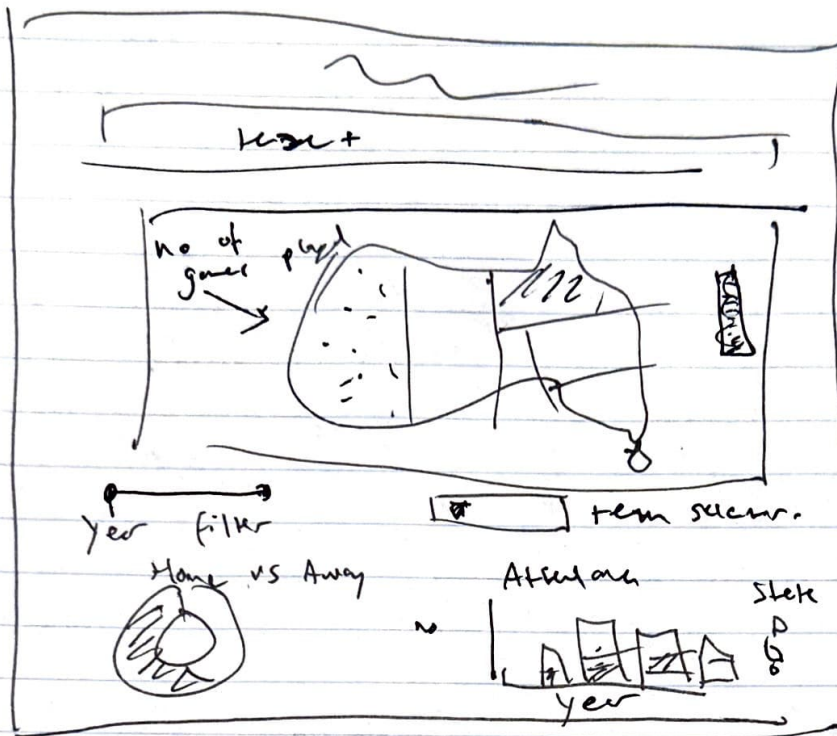 text
no of games played
year filter
team selector.
Home vs Away
Attendance
State
year